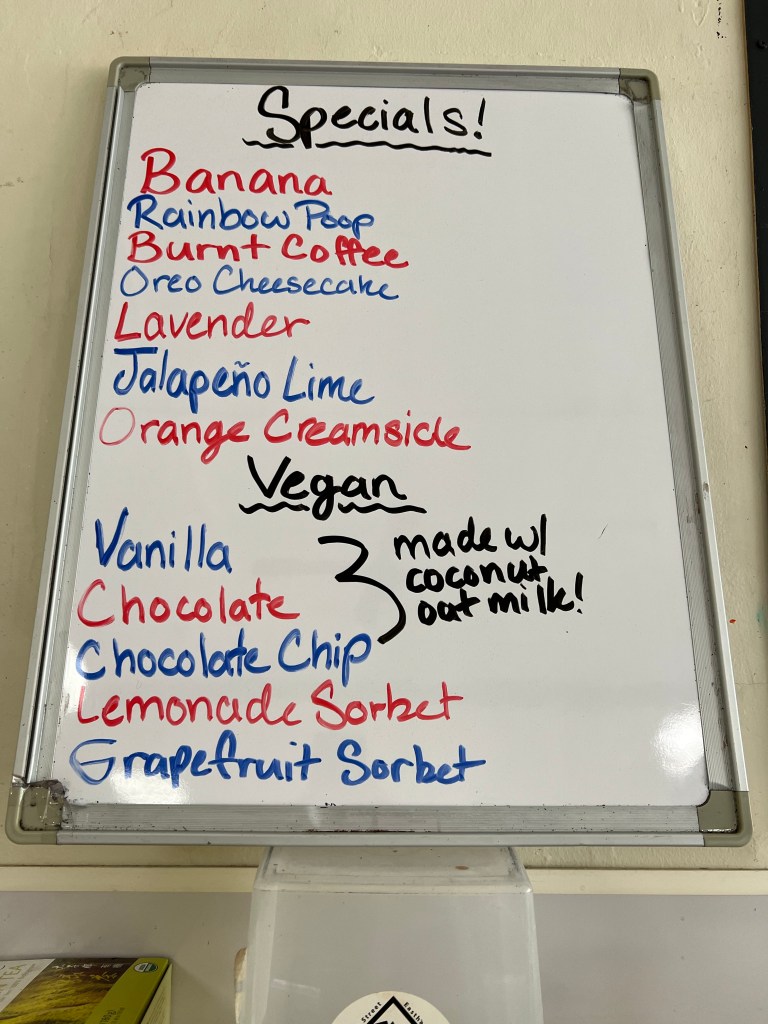 Specials!
Banana
Rainbow Poop
Burnt Coffee
Oreo Cheesecake
Lavender
Jalapeño Lime
Orange Creamsicle
Vegan
Vanilla
Chocolate
Chocolate Chip
made w/
coconut
oat milk!
Lemonade Sorbet
Grapefruit Sorbet
Street